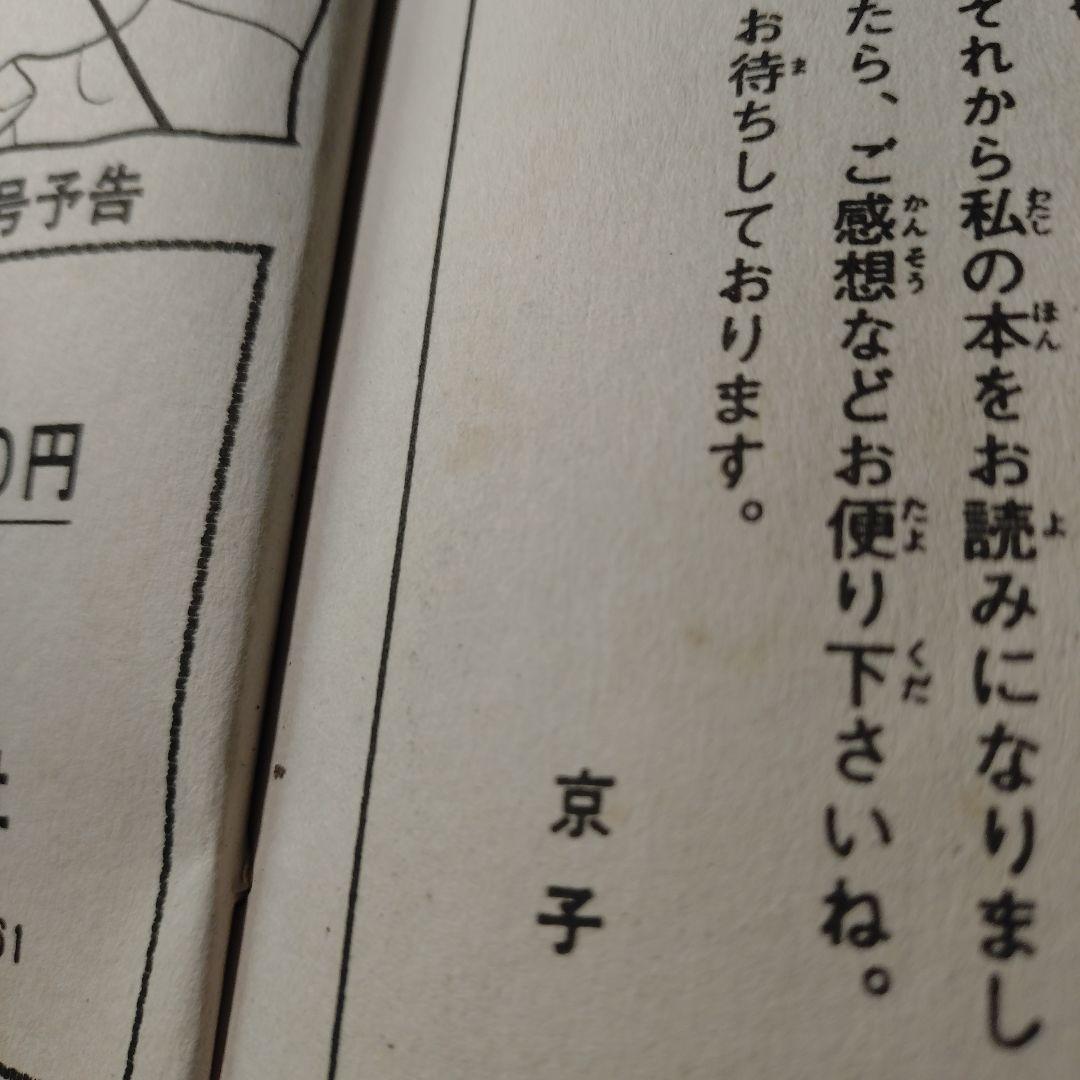 それから私の本をお読みになりまし
たら、ご感想などお便り下さいね。
お待ちしております。
京子
号予告
円
61